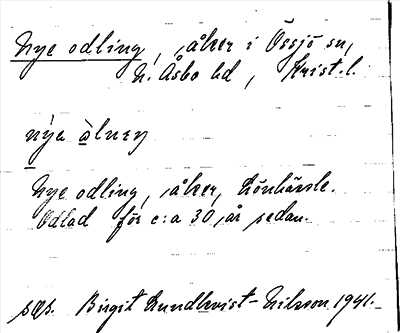 Nye odling, åker i Össjö sn,
N. Åsbo hd, Krist. l.
nýa òlnıŋ
Nye odling, åker, Lönhärsle.
Odlad för c:a 30 år sedan.
SOS. Birgit Lundkvist-Nilsson 1941.